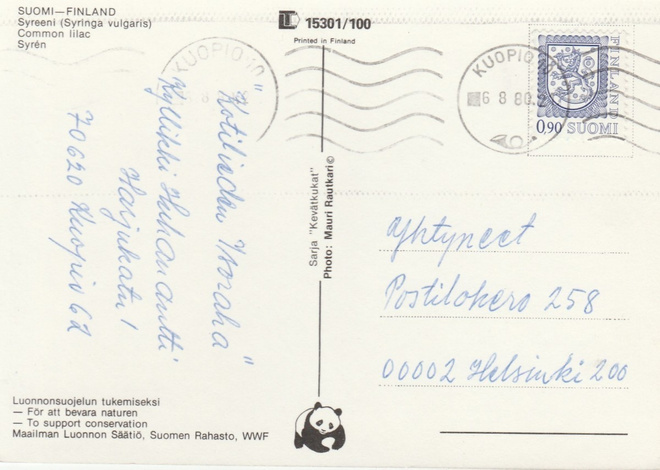 SUOMI—FINLAND
Syreeni (Syringa vulgaris)
Common lilac
Syrén
15301/100
Printed in Finland
KUOPIO 10
KUOPIO 10
6 8 80
FINLAND
0,90 SUOMI
"Kotilieden
Kyllikki
Harjukatu 1
70620 Kuopio 62
Sarja "Kevätkukat"
Photo: Mauri Rautkari©
Yhtyneet
Postilokero 258
00002 Helsinki 200
Luonnonsuojelun tukemiseksi
— För att bevara naturen
— To support conservation
Maailman Luonnon Säätiö, Suomen Rahasto, WWF